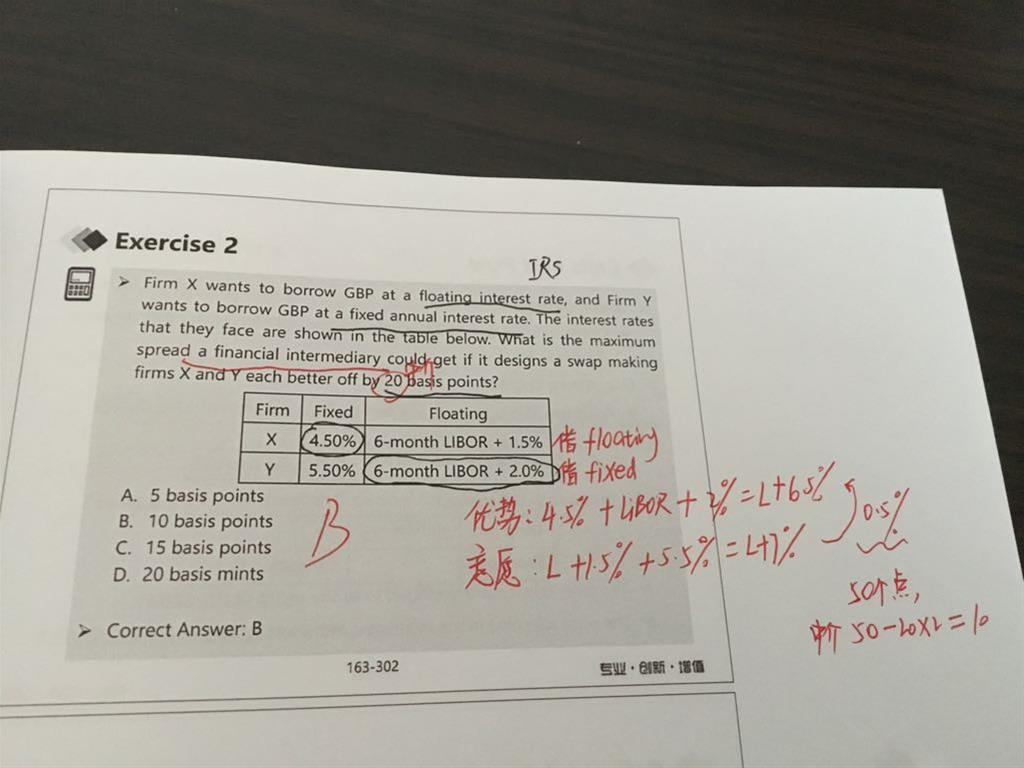 Exercise 2
IRS
➤ Firm X wants to borrow GBP at a floating interest rate, and Firm Y
wants to borrow GBP at a fixed annual interest rate. The interest rates
that they face are shown in the table below. What is the maximum
spread a financial intermediary could get if it designs a swap making
中介
firms X and Y each better off by 20 basis points?
Firm Fixed Floating
X 4.50% 6-month LIBOR + 1.5% 借 floating
Y 5.50% 6-month LIBOR + 2.0% 借 fixed
A. 5 basis points
B. 10 basis points
C. 15 basis points
D. 20 basis mints
B
优势: 4.5% + LIBOR + 2% = L+6.5%
意愿: L+1.5% + 5.5% = L+7%
0.5%
50个点,
中介 50-20×2=10
➤ Correct Answer: B
163-302
专业·创新·增值